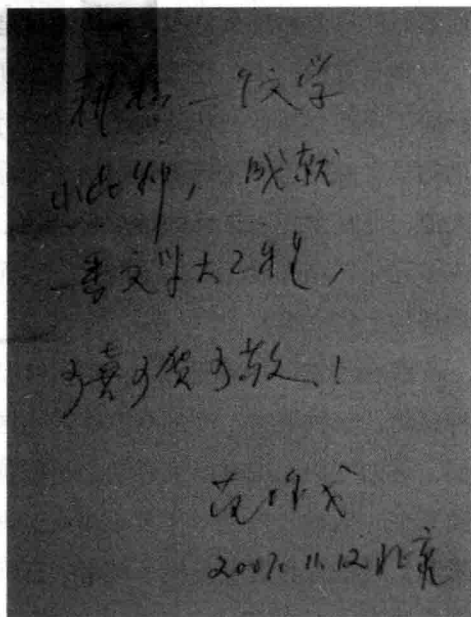 耕耘一个文学
小，成就
一番文学大工程，
可喜可贺可敬！
范咏戈
2007.11.12北京